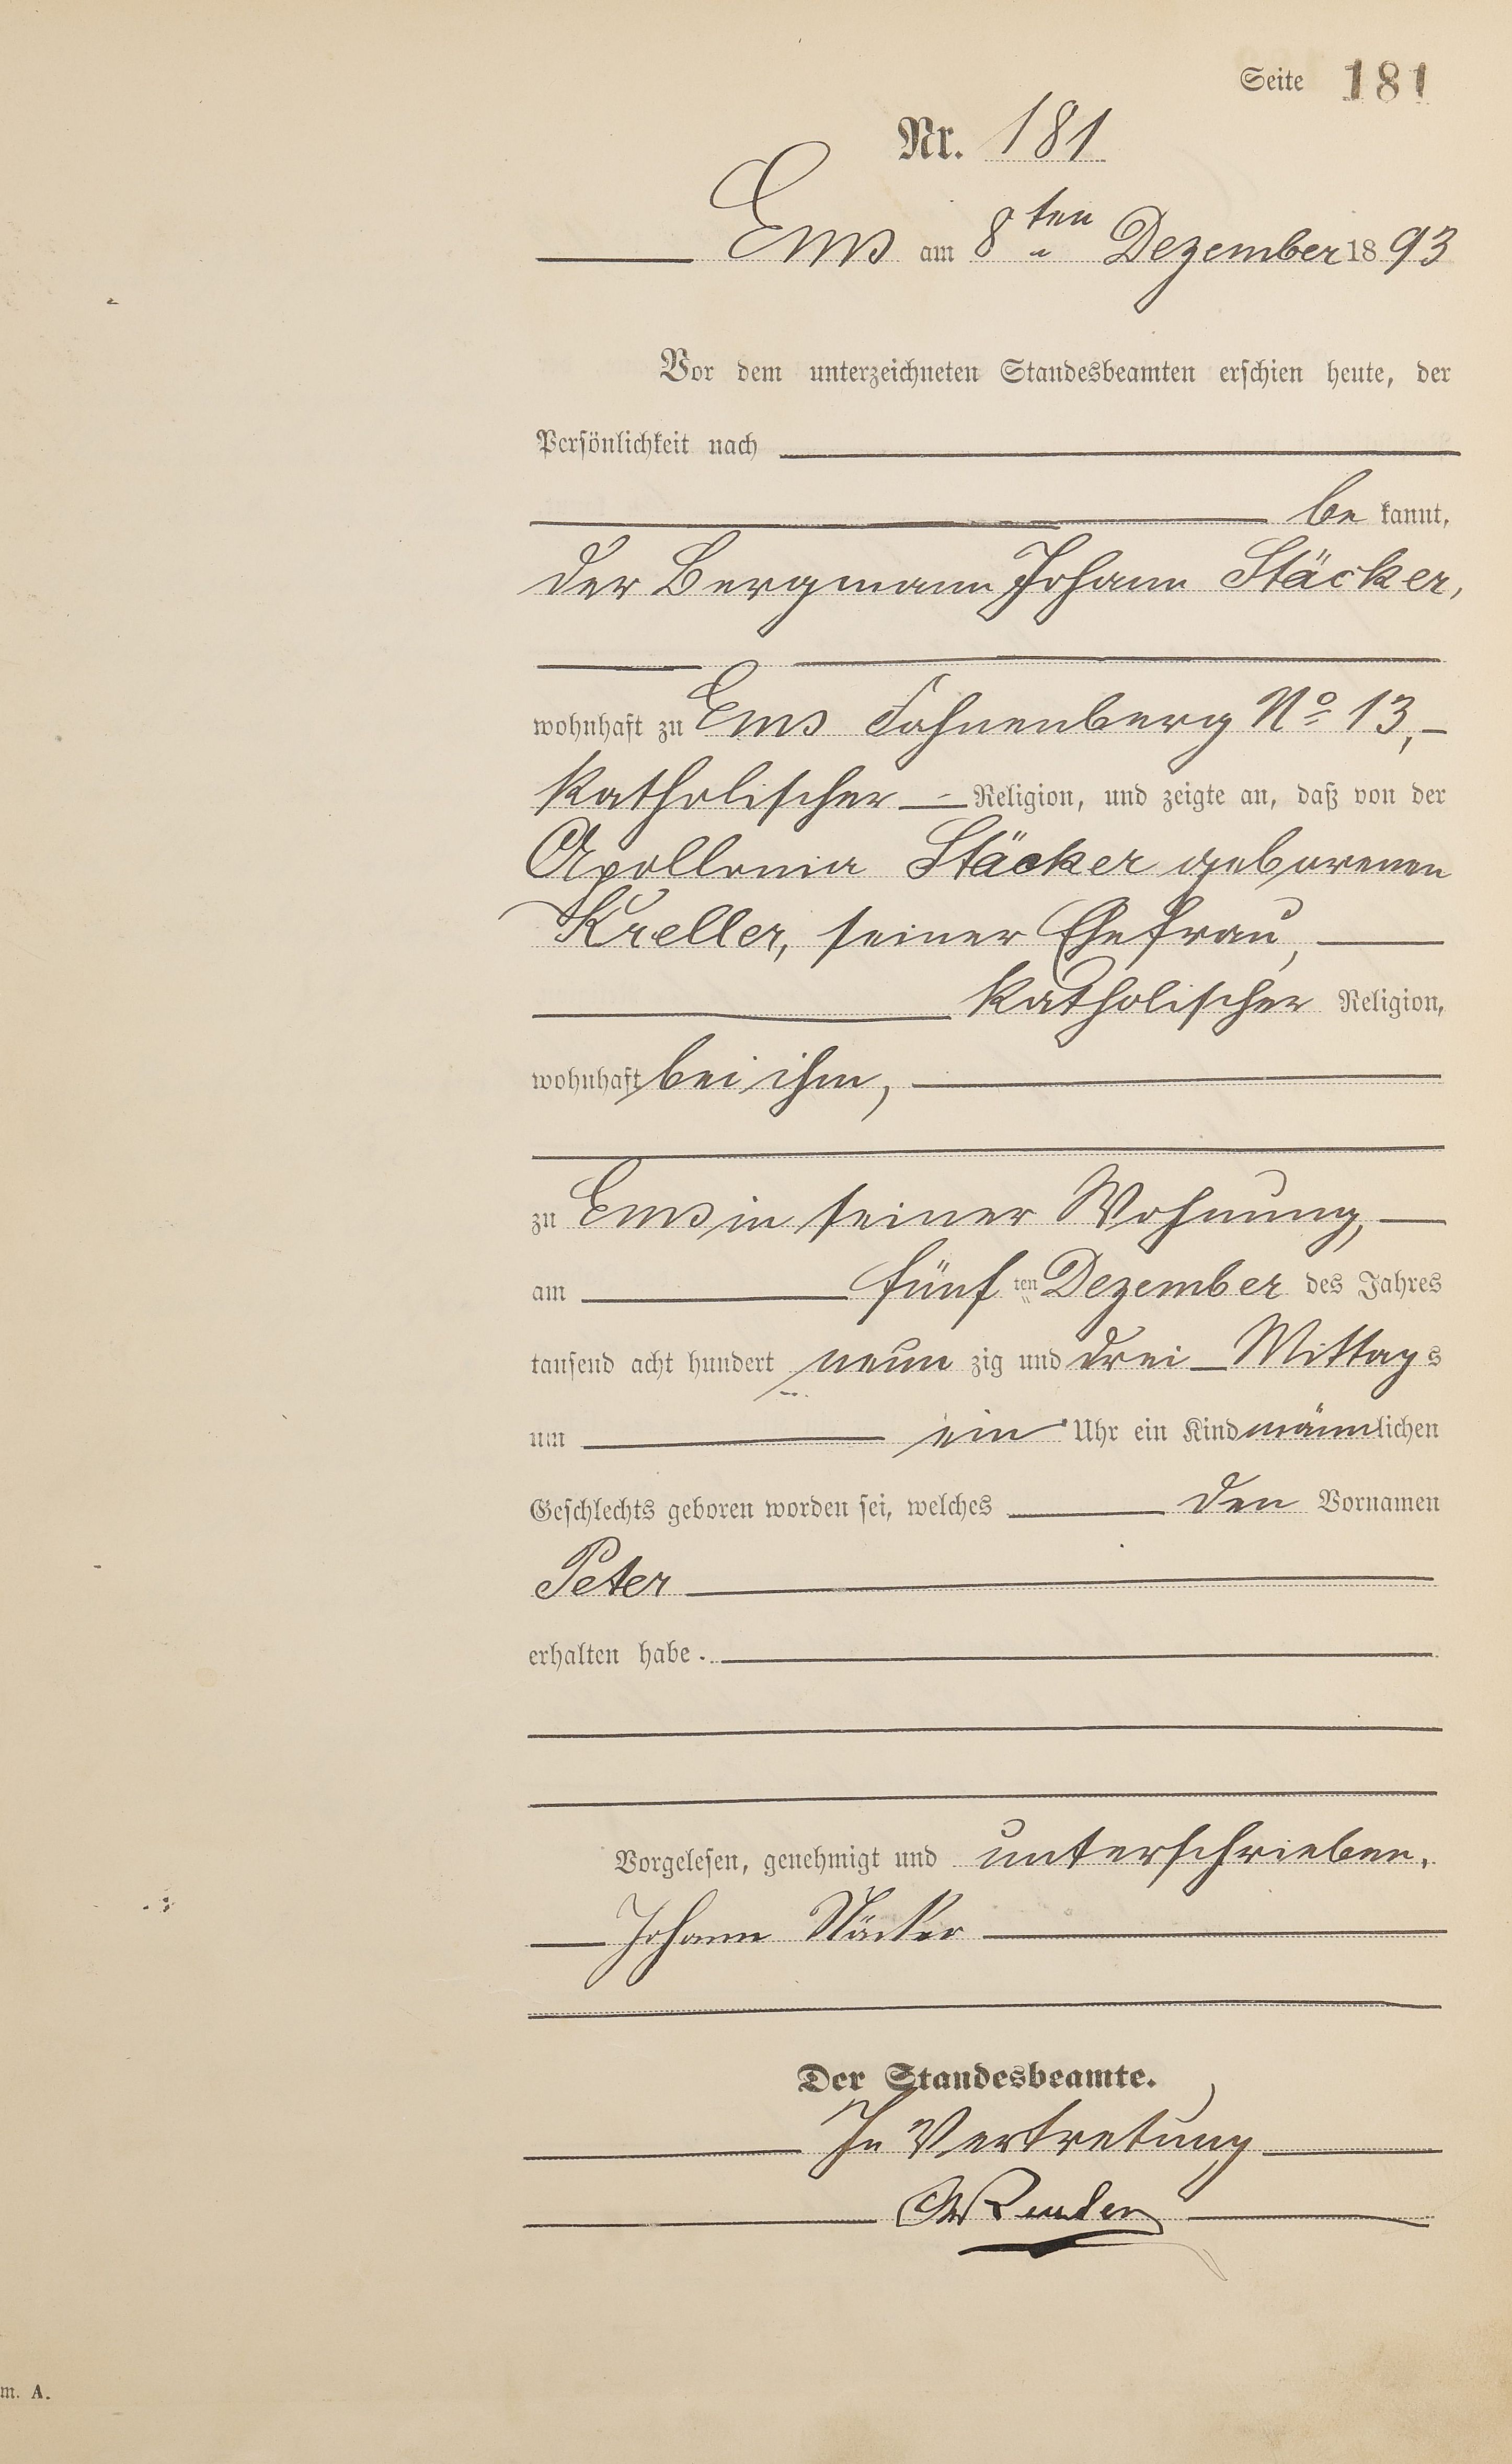 Seite 181
Nr. 181
Ems am 8ten Dezember 1893
Vor dem unterzeichneten Standesbeamten erschien heute, der
Persönlichkeit nach
be kannt,
der Bergmann Johann Stäcker,
wohnhaft zu Ems Fahnenberg No 13,
katholischer Religion, und zeigte an, daß von der
Apollonia Stäcker geborenen
Kreller, seiner Ehefrau,
katholischer Religion,
wohnhaft bei ihm,
zu Ems in seiner Wohnung,
am fünf ten Dezember des Jahres
tausend acht hundert neun zig und drei Mittags
um ein Uhr ein Kind männlichen
Geschlechts geboren worden sei, welches den Vornamen
Peter
erhalten habe.
Vorgelesen, genehmigt und unterschrieben.
Johann Stäcker
Der Standesbeamte.
In Vertretung
m. A.